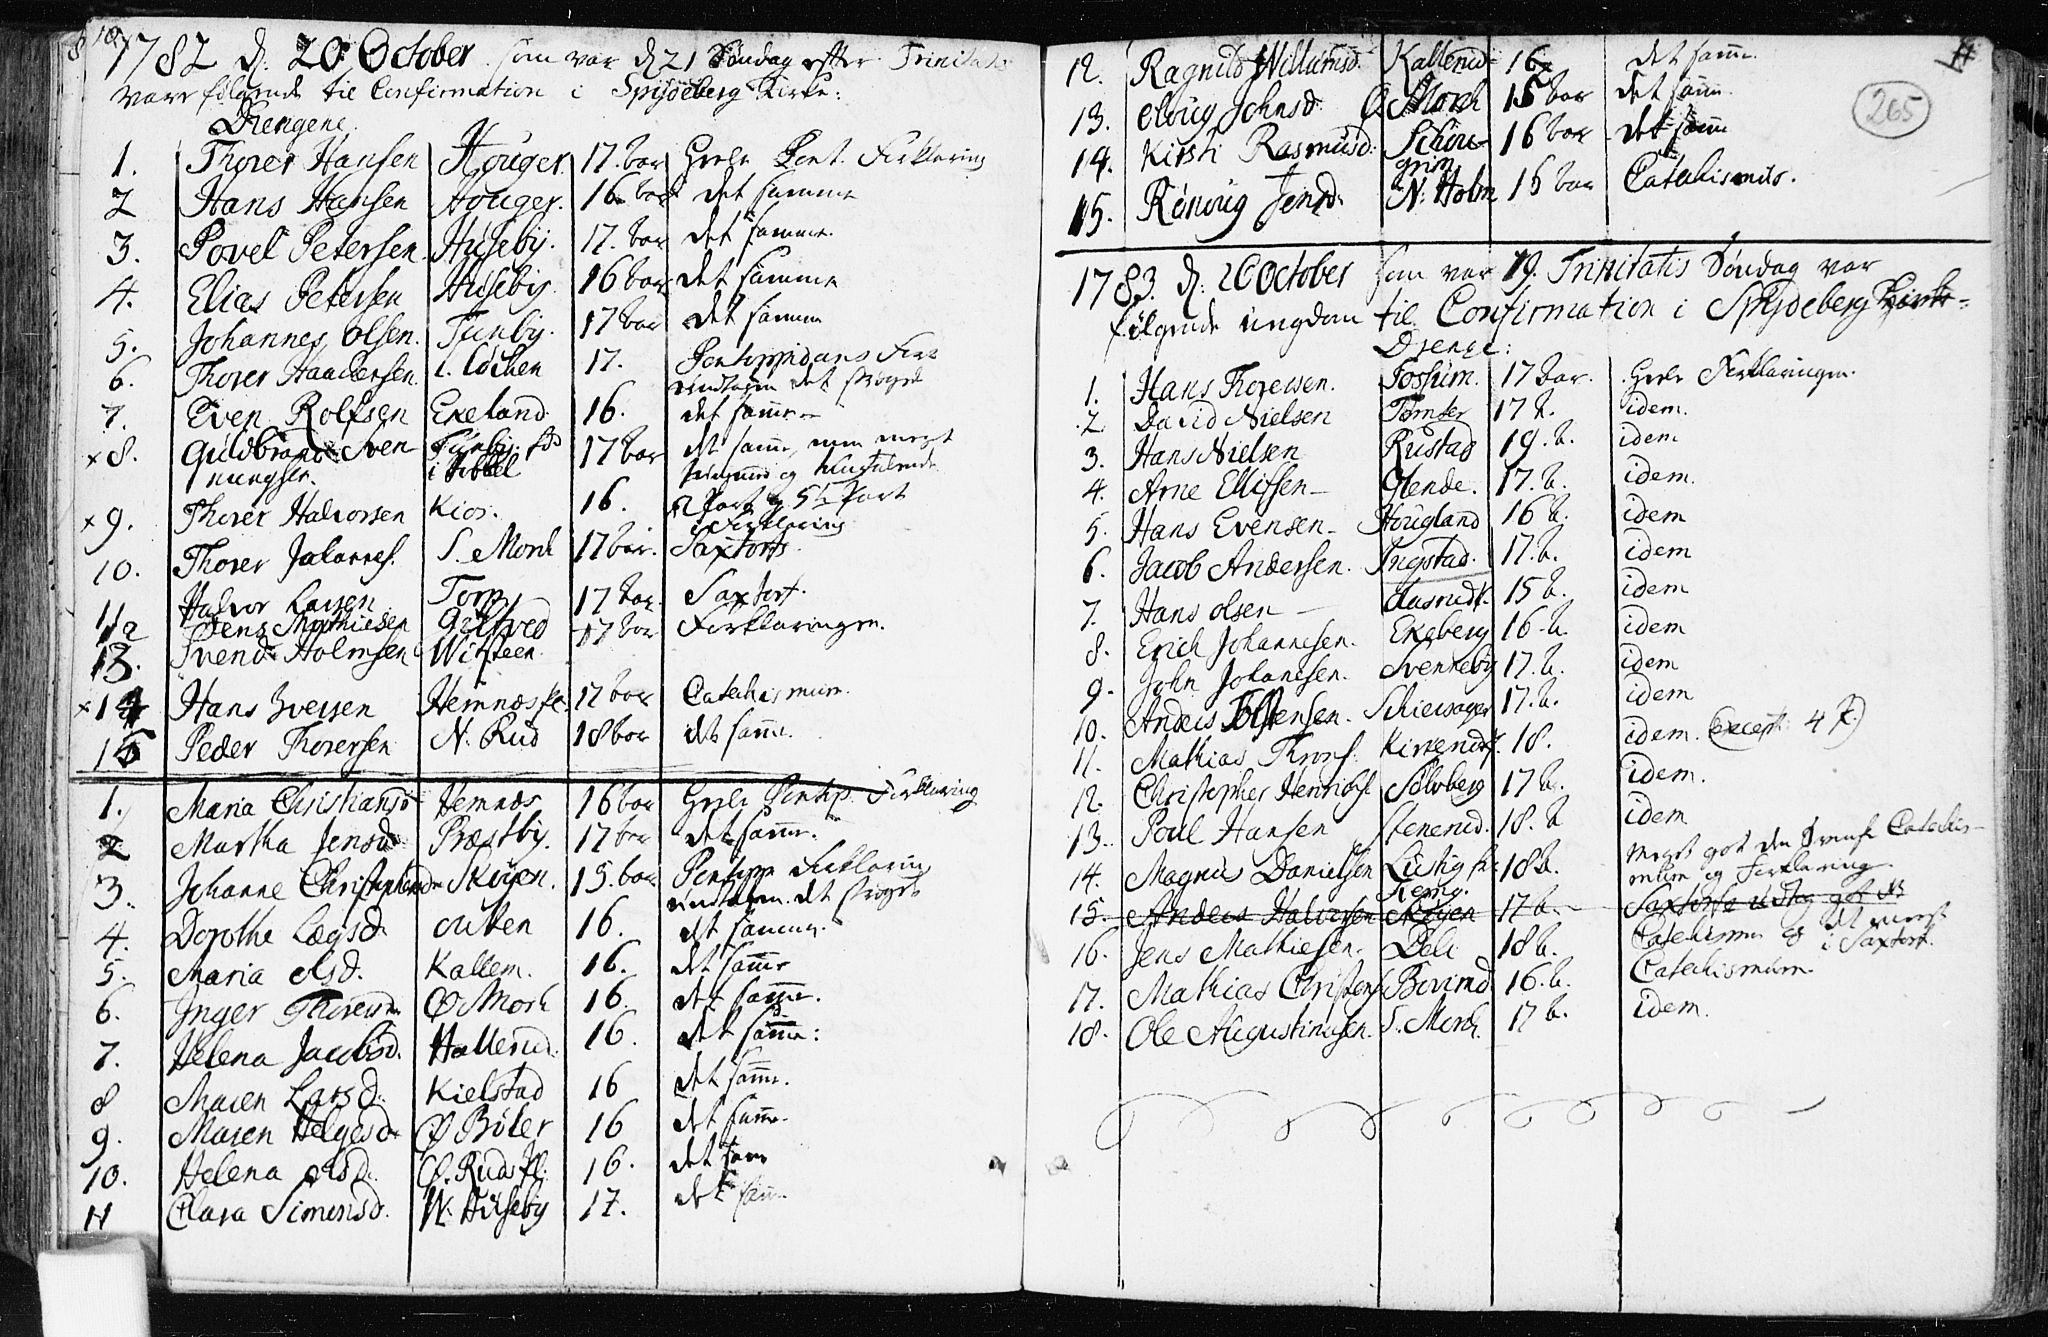 1782 d. 20 October som var d 21 Søndag efter Trinitatis
vare følgende til Confirmation i Spydeberg Kirke:
Drengene
1. Thorer Hansen Houger 17. aar Heele Pont. Forklaring
2 Hans Hansen Houger. 16. aar det samme
3. Povel Petersen Huseby. 17. aar det samme.
4. Elias Petersen Huseby 16 aar det samme
5. Johannes Olsen. Tunby. 17 aar det samme
6. Thorer Haagensen. i. Løchen 17. Pontoppidans Fork
undtagen det strøgne
7. Even Rolfsen Ekeland 16. det samme
x 8. Guldbrand Sven Tunby 17 aar det samme, men meget
ningsen. i
x 9. Thorer Halvorsen Kior. 16. 2 Part og 5te Part
i Forklaring
10. Thorer Johannes. S. Mork 17 aar. Saxtorfs.
11 Halvor Larsen Torp 17 aar. Saxtorf.
12 Jens Mathiesen Gulsved 17 aar Forklaringen.
13. Svend Holmsen Witsteen
x 14 Hans Iversen Hemnæs pl. 17 aar Catechismum.
15 Peder Thorersen N. Rud 18 aar det samme.
1. Maria Christiansd Hemnæs 16 aar Heele Pontop. Forklaring
2 Martha Jensd Præstby. 17 aar det samme.
3. Johanne Christophersd Skuen. 15. aar Pontopp Forklaring
undtagen det strøgne
4. Dorothe Lægsd 16. det samme.
5. Maria Olsd. Kallem. 16. det samme
6. Inger Thoresd. Ø Mork 16. det samme.
7. Helena Jacobsd. Hallerud. 16. det samme:
8 Maren Larsd. Kielstad 16 det samme.
9. Maren Helgesd Ø Bøler 16 det samme.
10. Helena Olsd. Ø. Ruds pl: 16. det samme
11 Clara Simensd. N. Huseby 17. det samme
265
12. Ragnild Willumsd. Kallerud 16 det samme.
13. Elbug Johnsd. Ø Mork 15 aar det samme.
14. Kirsti Rasmusd: Schou- 16 aar det samme
grim
15. Rønnug Jensd. N. Holm 16 aar Catechismus.
1783. d. 26 October som var 19. Trinitatis Søndag var
følgende ungdom til Confirmation i Spydeberg Kirke
Drenge:
1. Hans Thoresen. Fossum. 17 aar. Heele Forklaringen.
2 David Nielsen Tomter 17 A. idem.
3. Hans Nielsen Rustad 19. A. idem
4. Arne Ellissen Glende. 17. A. idem.
5. Hans Evensen Hougland 16 A. idem
6. Jacob Andersen. Ingstad. 17. A. idem
7. Hans Olsen Aasrud 15 A. idem
8. Erich Johannesen. Ekeberg 16 A. idem
9. John Johanesen. Svenneby 17. A. idem
10. Anders Tolstensen. Schiersager 17. A. idem
11. Mathias Thronds. 18. idem. (Except: 4 P.)
12. Christopher Henrichs. Solberg 17 A. idem.
13. Poul Hansen Stenerud. 18. A idem
14. Magnus Danielsen Lustig pl. 18 A. meget got den Svenske Catechis-
mum og Forklaring
15. Anders Halvorsen Skuen 17 A.
16. Jens Mathiesen. Deli 18 A. Catechismum og det meeste
i Saxtorf.
17. Mathias Christens Bovimd 16. A. Catechismum
18. Ole Augustinusen. S. Mork. 17 A. idem.